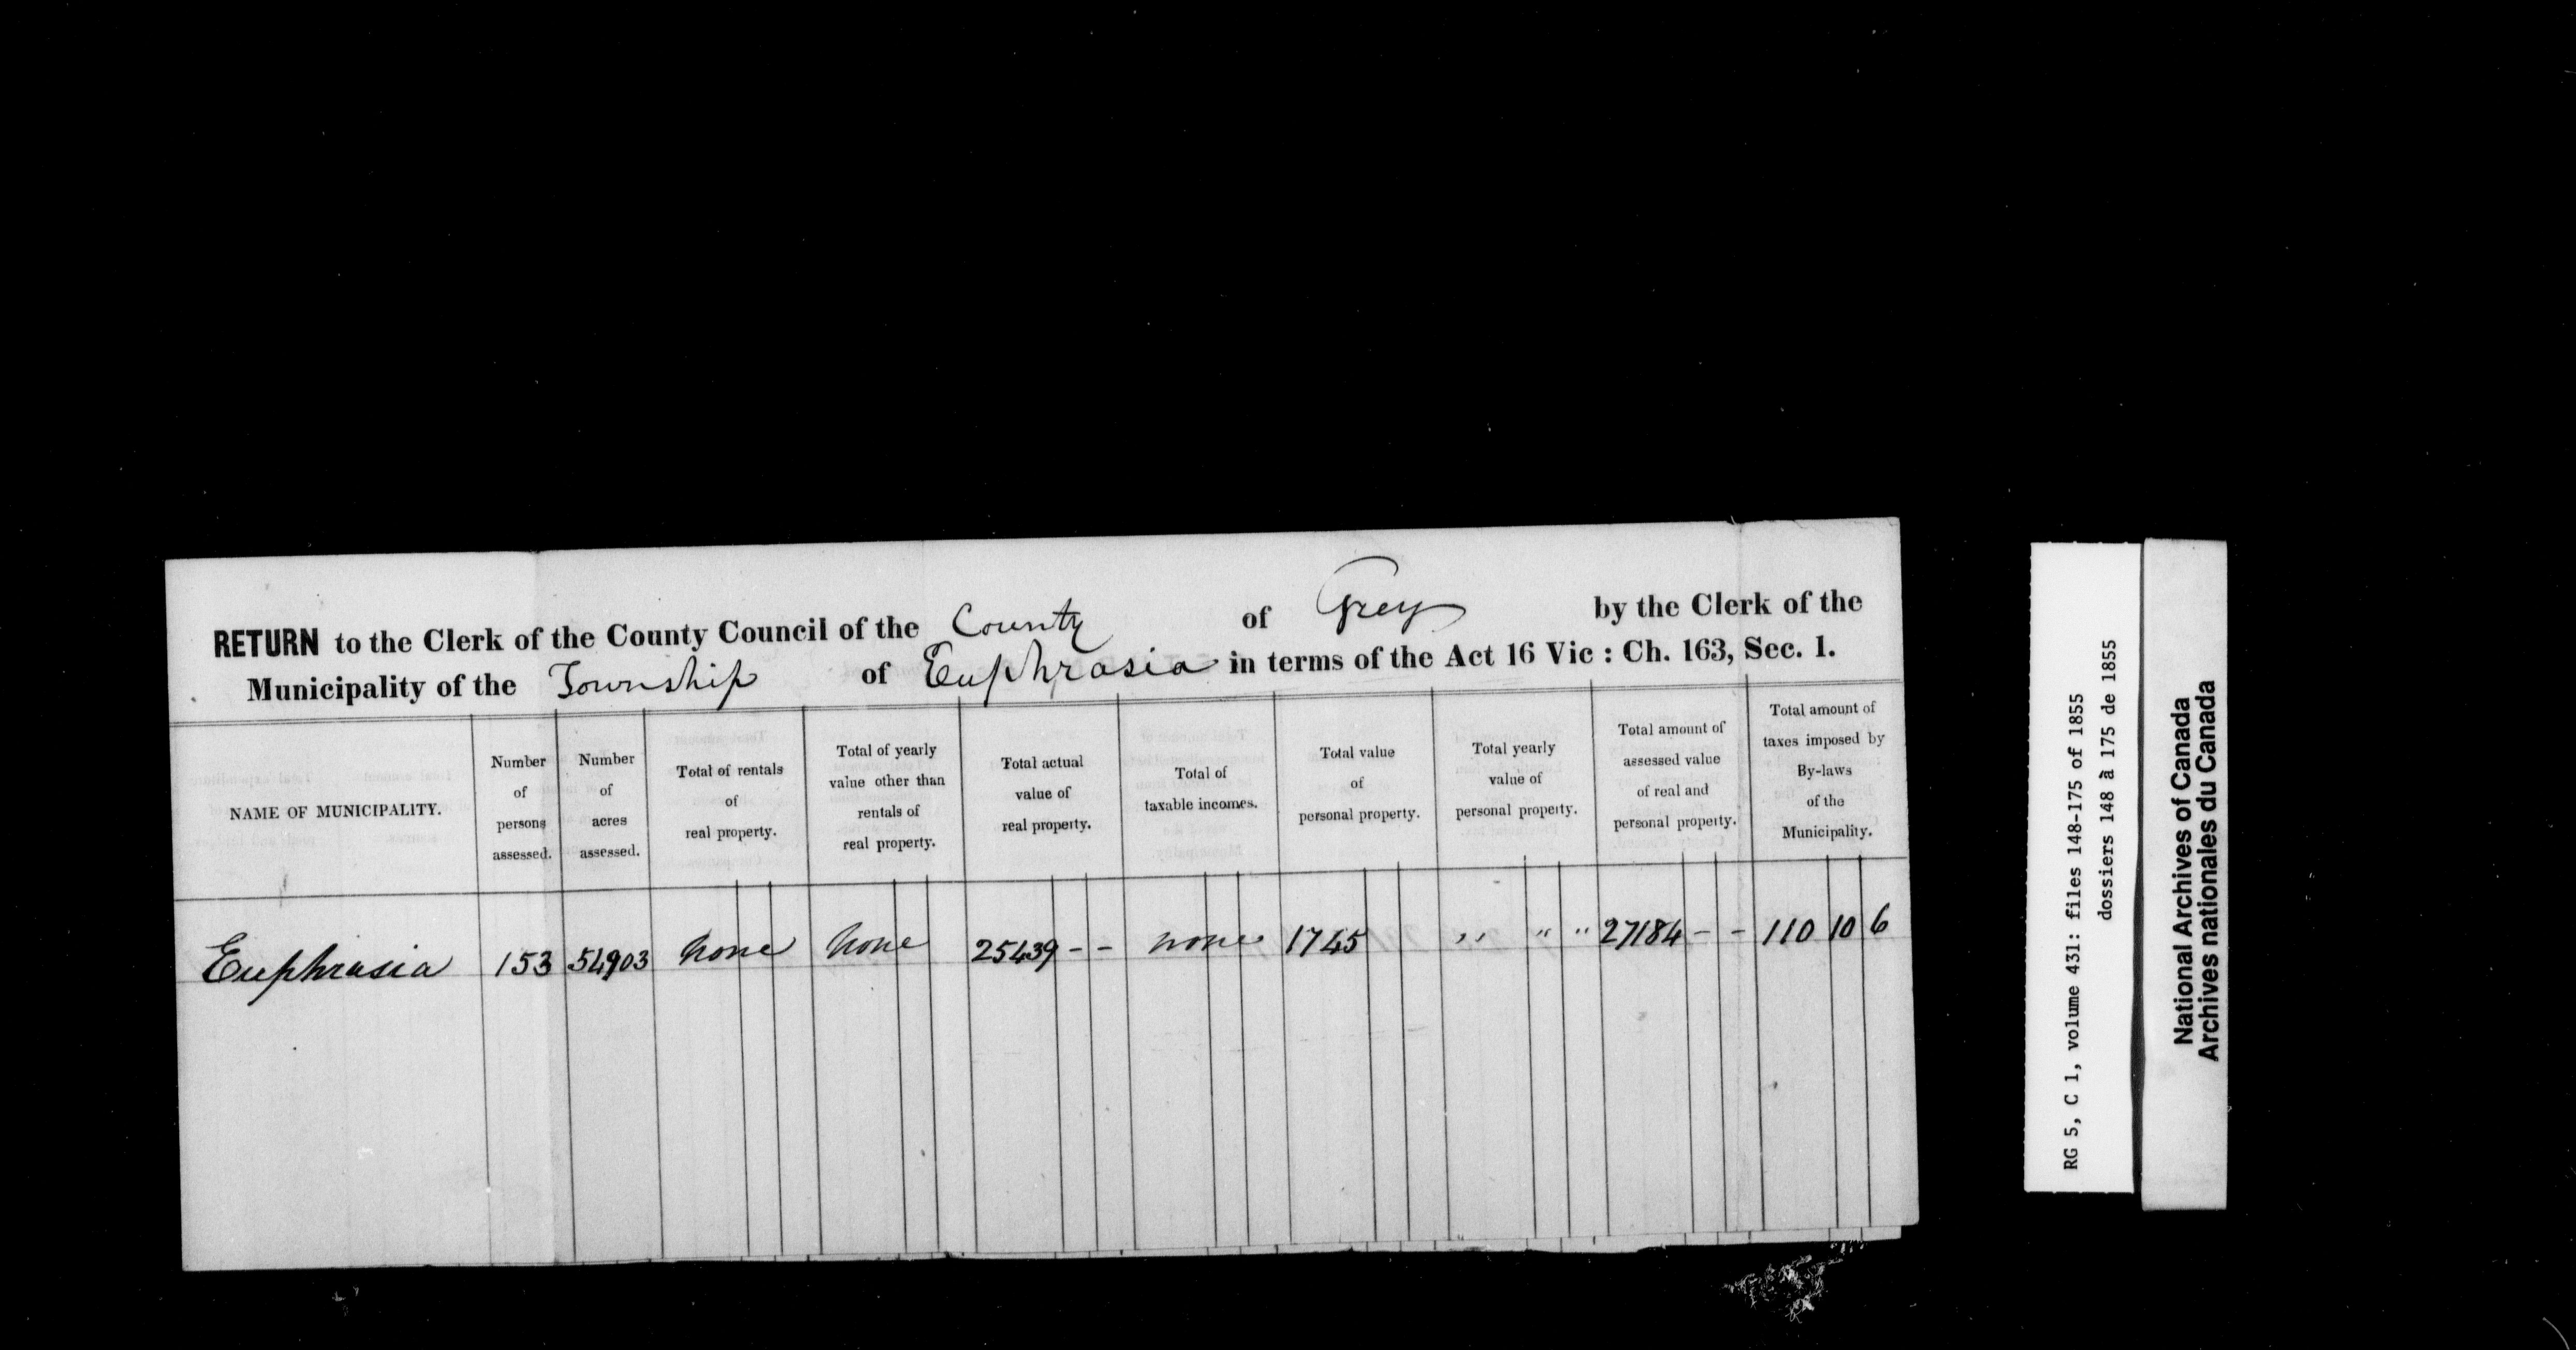 RETURN to the Clerk of the County Council of the County of Grey by the Clerk of the
Municipality of the Township of Euphrasia in terms of the Act 16 Vic : Ch. 163, Sec. 1.
NAME OF MUNICIPALITY.
Number
of
persons
assessed.
Number
of
acres
assessed.
Total of rentals
of
real property.
Total of yearly
value other than
rentals of
real property.
Total actual
value of
real property.
Total of
taxable incomes.
Total value
of
personal property.
Total yearly
value of
personal property.
Total amount of
assessed value
of real and
personal property.
Total amount of
taxes imposed by
By-laws
of the
Municipality.
Euphrasia 153 54903 none none 25439 - - none 1745 " " " 27184 - - 110 10 6
RG 5, C 1, volume 431: files 148-175 of 1855
dossiers 148 à 175 de 1855
National Archives of Canada
Archives nationales du Canada